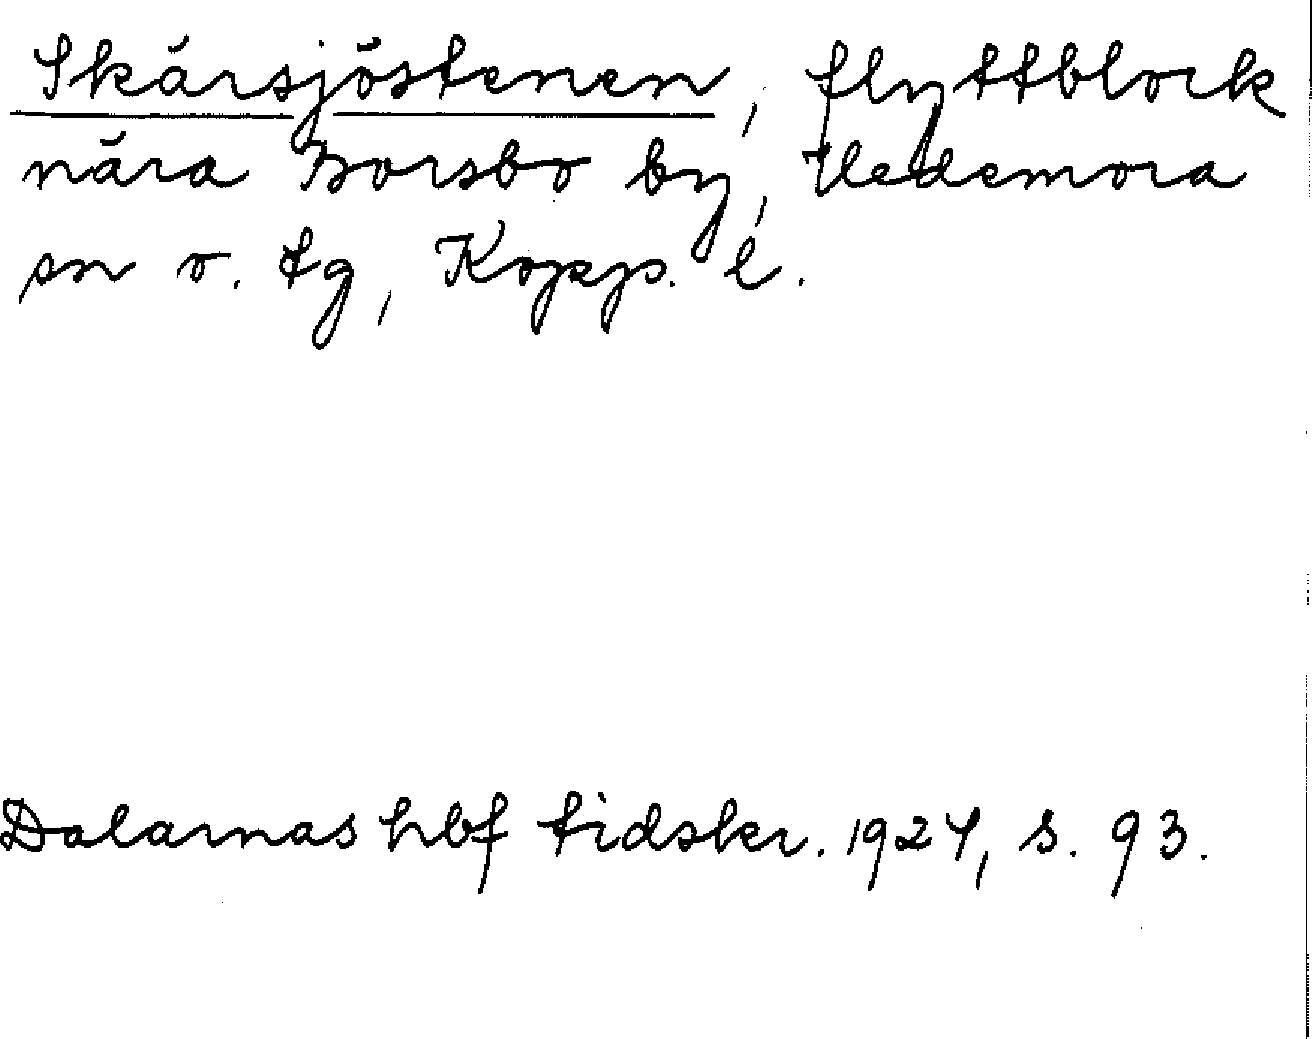 Skärsjöstenen, flyttblock
nära Borsbo by, Hedemora
sn o. tg, Kopp. l.
Dalarnas hbf tidskr. 1924, s. 93.